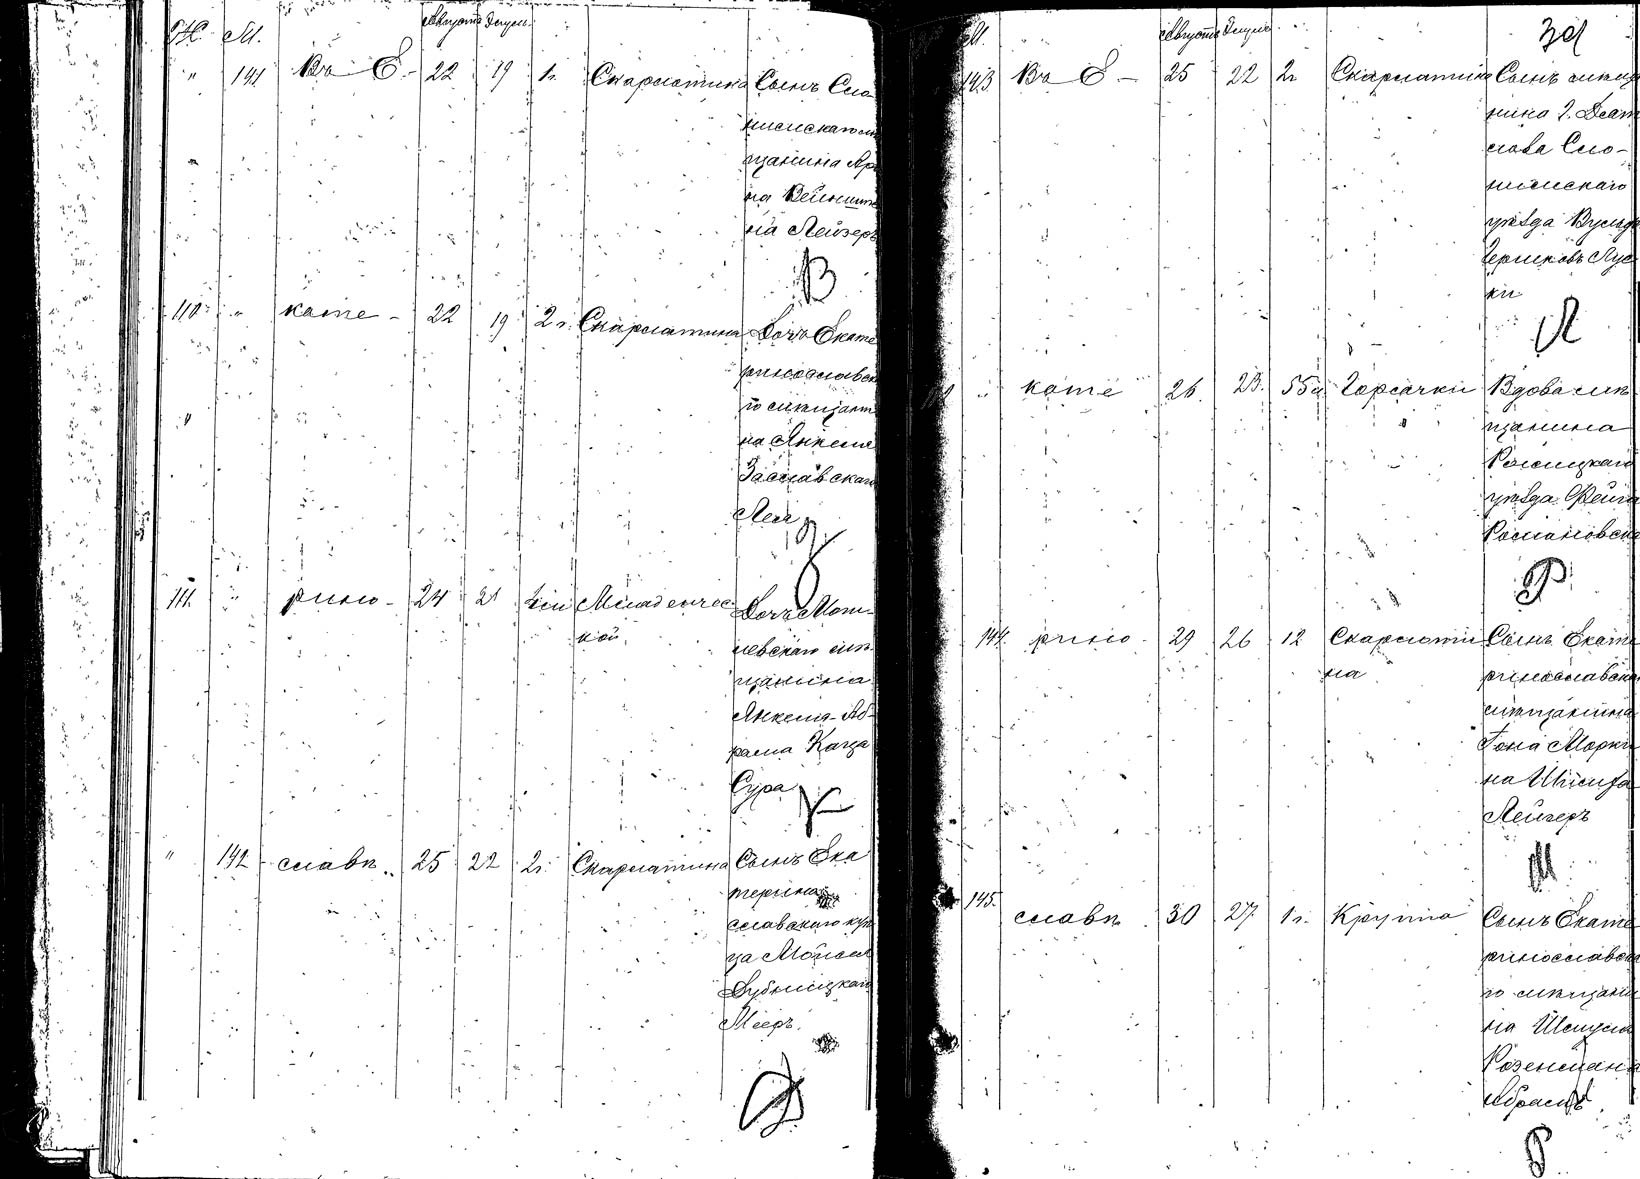 Ж. М. Августъ Элулъ
" 141 Въ Е.- 22 19 1г. Скарлатина Сынъ Сло
нимскаго мѣ
щанина Аро
на Вейнште
на Лейзеръ
В
110 " кате - 22 19 2г. Скарлатина Дочь Екате
ринославск
го мѣщани
на Янкеля
Заславскаго
Лея
З
111. " рино - 24 21 Младенчес
кой
Дочь Моги
левскаго мѣ
щанина
Янкеля-Аб-
рама Каца
Сура
К
" 142 славѣ.. 25 22 2г. Скарлатина Сынъ Ека
терино
славскаго куп
ца Мойсея
Дубницкаго
Меер.
Д
М. Августъ Элулъ
39
143. Въ Е - 25 22 2г Скарлатина Сынъ мѣща
нина
Сло-
нимскаго
уѣзда Вульфа
ки
Л
" кате 26. 23. 55л Горячки Вдова мѣ
щанина
уѣзда Фейга
Романовска
Р
144. рино - 29 26 12 Скарлати
на
Сынъ Екате
ринославска
мѣщанина
Марки
на
Лейзеръ
М
145. славѣ. 30 27. 1г. Крупа Сынъ Екате
ринославска
го мѣщани
на Шмуля
Розенмана
Абрамъ
Р